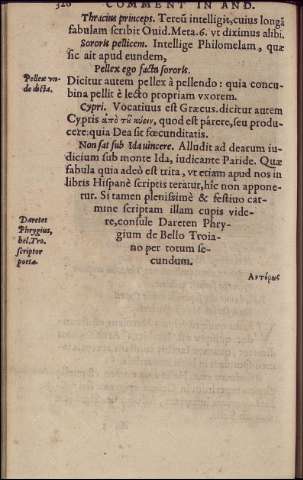 320 COMMENT IN AND.
Thracius princeps. Tereū intelligit, cuius longā
fabulam scribit Ouid. Meta. 6. vt diximus alibi.
Sororis pellicem. Intellige Philomelam, quæ
sic ait apud eundem,
Pellex ego facta sororis.
Pellex vn-
de dicta.
Dicitur autem pellex à pellendo: quia concu-
bina pellit è lecto propriam vxorem.
Cypri. Vocatiuus est Græcus. dicitur autem
Cypris ἀπὸ τῦ κύειν, quod est párere, seu produ-
cere: quia Dea sit fœcunditatis.
Non sat sub Ida uincere. Alludit ad dearum iu-
dicium sub monte Ida, iudicante Paride. Quæ
fabula quia adeò est trita, vt etiam apud nos in
libris Hispanè scriptis teratur, hîc non appone-
tur. Si tamen plenissimè & festiuo car-
mine scriptam illam cupis vide-
re, consule Dareten Phry-
gium de Bello Troia-
no per totum se-
cundum.
Daretes
Phrygius,
bel. Tro.
scriptor
poëta.
Αντέρως